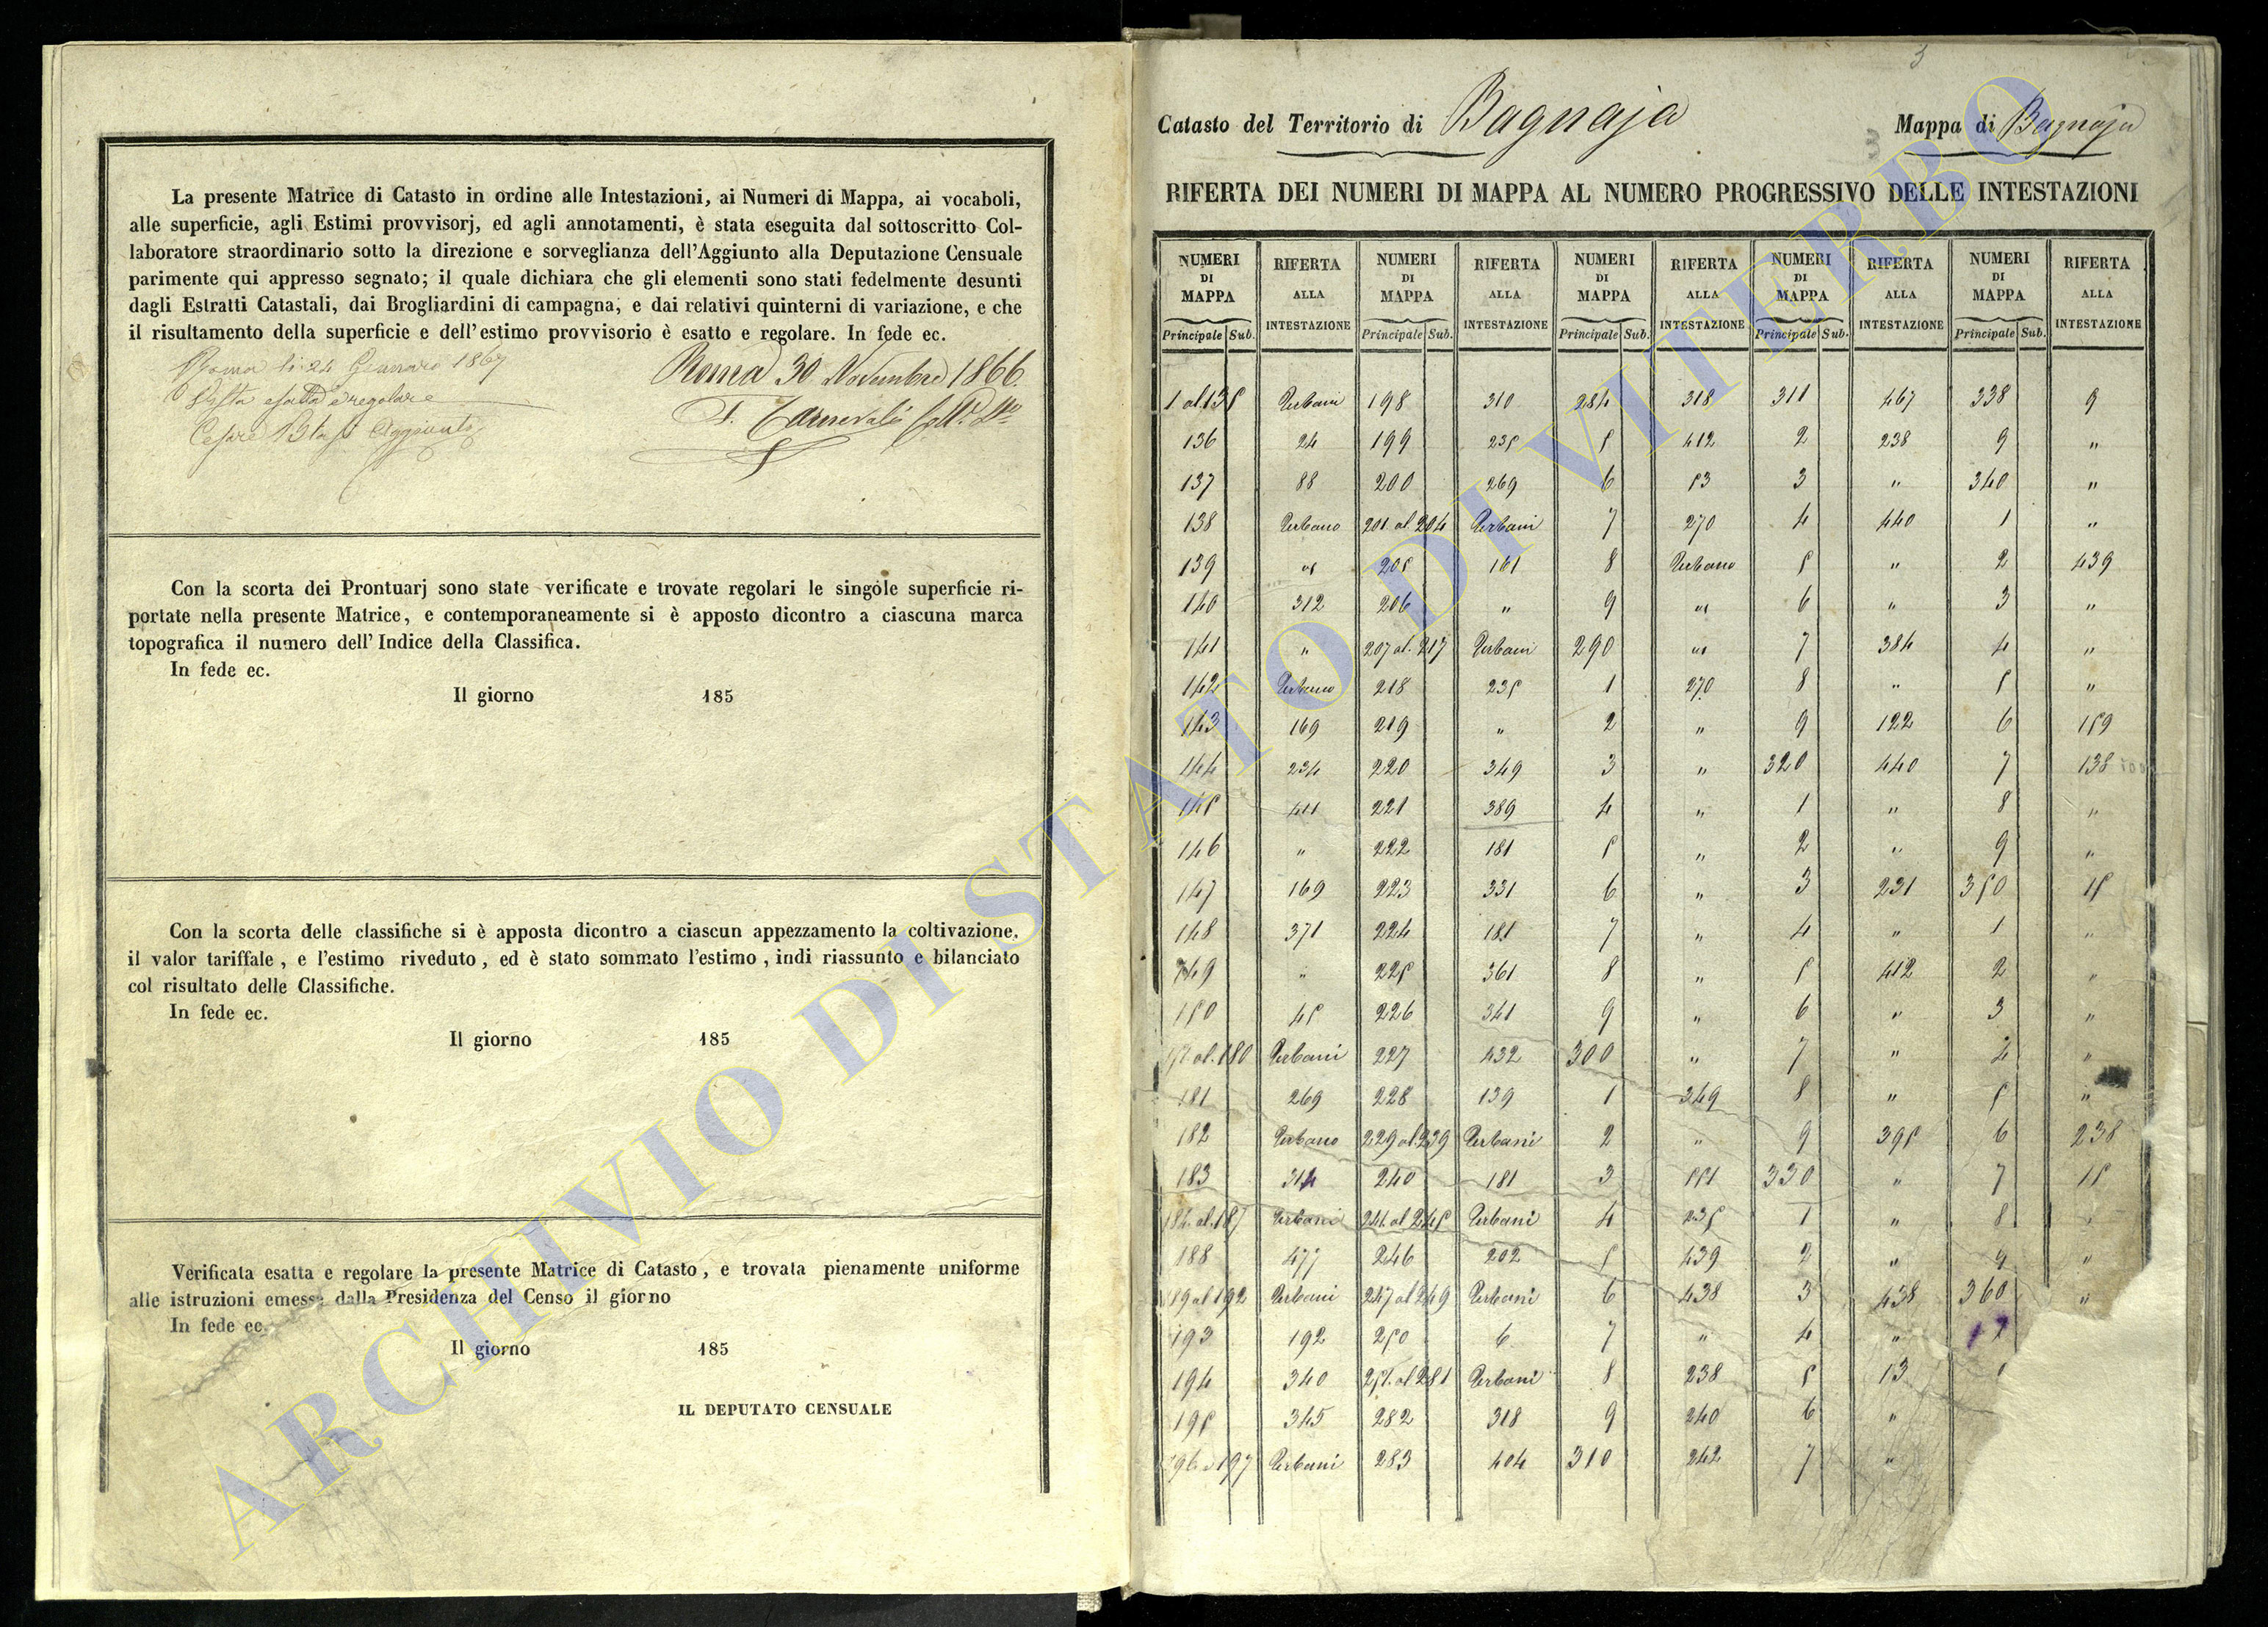 La presente Matrice di Catasto in ordine alle Intestazioni, ai Numeri di Mappa, ai vocaboli,
alle superficie, agli Estimi provvisorj, ed agli annotamenti, è stata eseguita dal sottoscritto Col-
laboratore straordinario sotto la direzione e sorveglianza dell'Aggiunto alla Deputazione Censuale
parimente qui appresso segnato; il quale dichiara che gli elementi sono stati fedelmente desunti
dagli Estratti Catastali, dai Brogliardini di campagna, e dai relativi quinterni di variazione, e che
il risultamento della superficie e dell'estimo provvisorio è esatto e regolare. In fede ec.
Roma li 24 Gennaro 1867
Roma 30 Novembre 1866.
Vista esatta e regolare
Cesare Aggiunto
Con la scorta dei Prontuarj sono state verificate e trovate regolari le singole superficie ri-
portate nella presente Matrice, e contemporaneamente si è apposto dicontro a ciascuna marca
topografica il numero dell'Indice della Classifica.
In fede ec.
Il giorno 185
Con la scorta delle classifiche si è apposta dicontro a ciascun appezzamento la coltivazione,
il valor tariffale, e l'estimo riveduto, ed è stato sommato l'estimo, indi riassunto e bilanciato
col risultato delle Classifiche.
In fede ec.
Il giorno 185
Verificata esatta e regolare la presente Matrice di Catasto, e trovata pienamente uniforme
alle istruzioni emesse dalla Presidenza del Censo il giorno
In fede ec.
Il giorno 185
IL DEPUTATO CENSUALE
3
Catasto del Territorio di Bagnaja Mappa di Bagnaja
3
RIFERTA DEI NUMERI DI MAPPA AL NUMERO PROGRESSIVO DELLE INTESTAZIONI
NUMERI DI MAPPA RIFERTA ALLA INTESTAZIONE NUMERI DI MAPPA RIFERTA ALLA INTESTAZIONE NUMERI DI MAPPA RIFERTA ALLA INTESTAZIONE NUMERI DI MAPPA RIFERTA ALLA INTESTAZIONE NUMERI DI MAPPA RIFERTA ALLA INTESTAZIONE
Principale Sub. Principale Sub. Principale Sub. Principale Sub. Principale Sub.
1 al 135 Urbani 198 310 284 318 311 467 338 9
136 24 199 235 5 412 2 238 9 "
137 88 200 269 6 53 3 " 340 "
138 Urbano 201 al 204 Urbani 7 270 4 440 1 "
139 " 205 161 8 Urbano 5 " 2 439
140 312 206 " 9 " 6 " 3 "
141 " 207 al 217 Urbani 290 " 7 384 4 "
142 Urbano 218 235 1 270 8 " 5 "
143 169 219 " 2 " 9 122 6 159
144 234 220 349 3 " 320 440 7 138
145 411 221 389 4 " 1 " 8 "
146 " 222 181 5 " 2 " 9 "
147 169 223 331 6 " 3 231 350 15
148 371 224 181 7 " 4 " 1 "
149 " 225 361 8 " 5 412 2 "
150 45 226 341 9 " 6 " 3 "
151 al 180 Urbani 227 432 300 " 7 " 4 "
181 269 228 139 1 349 8 " 5 "
182 Urbano 229 al 239 Urbani 2 " 9 395 6 238
183 314 240 181 3 551 330 " 7 15
184 al 187 Urbani 241 al 245 Urbani 4 235 1 " 8 "
188 477 246 202 5 439 2 " 9 "
189 al 192 Urbani 247 al 249 Urbani 6 438 3 438 360 "
193 192 250 6 7 " 4 " 1
194 340 251 al 281 Urbani 8 238 5 13
195 345 282 318 9 240 6 "
196 197 Urbani 283 404 310 242 7 "
ARCHIVIO DI STATO DI VITERBO